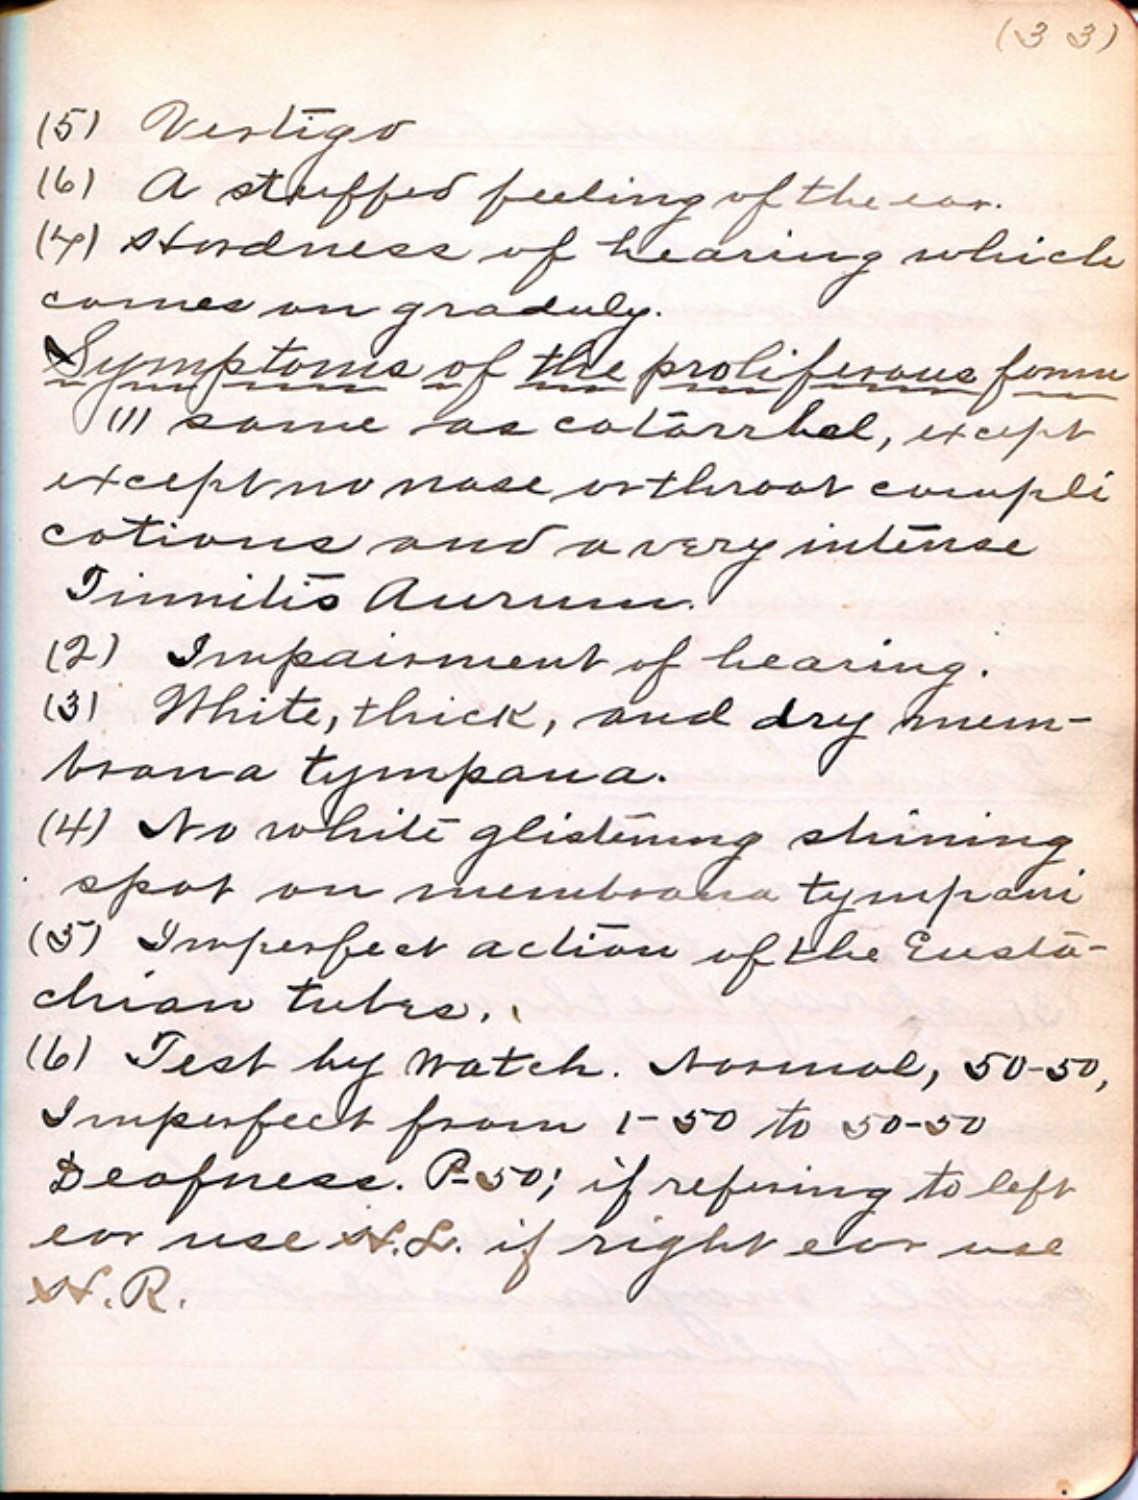 (33)
(5) Vertigo
(6) A stuffed feeling of the ear.
(7) Hardness of hearing which
comes on graduly.
Symptoms of the proliferous form
(1) same as catarrhal, except
except no nose or throat compli
cations and a very intense
Tinnitis Aurum.
(2) Impairment of hearing.
(3) White, thick, and dry mem-
brana tympana.
(4) No white glistening shining
spot on membrana tympani
(5) Imperfect action of the Eusta-
chian tubes.
(6) Test by Watch. Normal, 50-50,
Imperfect from 1-50 to 50-50
Deafness. P-50; if refering to left
ear use H.L. if right ear use
H.R.